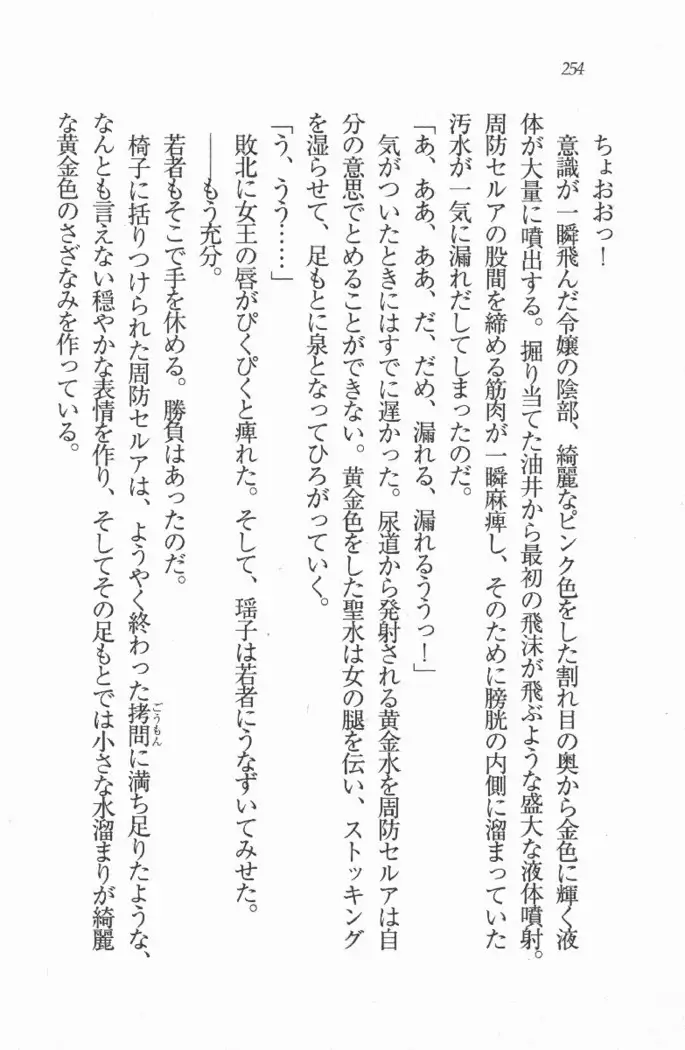 254
ちょおおっ！
意識が一瞬飛んだ令嬢の陰部、綺麗なピンク色をした割れ目の奥から金色に輝く液
体が大量に噴出する。掘り当てた油井から最初の飛沫が飛ぶような盛大な液体噴射。
周防セルアの股間を締める筋肉が一瞬麻痺し、そのために膀胱の内側に溜まっていた
汚水が一気に漏れだしてしまったのだ。
「あ、ああ、ああ、だ、だめ、漏れる、漏れるううっ！」
気がついたときにはすでに遅かった。尿道から発射される黄金水を周防セルアは自
分の意思でとめることができない。黄金色をした聖水は女の腿を伝い、ストッキング
を湿らせて、足もとに泉となってひろがっていく。
「う、うう……」
敗北に女王の唇がぴくぴくと痺れた。そして、瑶子は若者にうなずいてみせた。
――もう充分。
若者もそこで手を休める。勝負はあったのだ。
椅子に括りつけられた周防セルアは、ようやく終わった拷問ごうもんに満ち足りたような、
なんとも言えない穏やかな表情を作り、そしてその足もとでは小さな水溜まりが綺麗
な黄金色のさざなみを作っている。